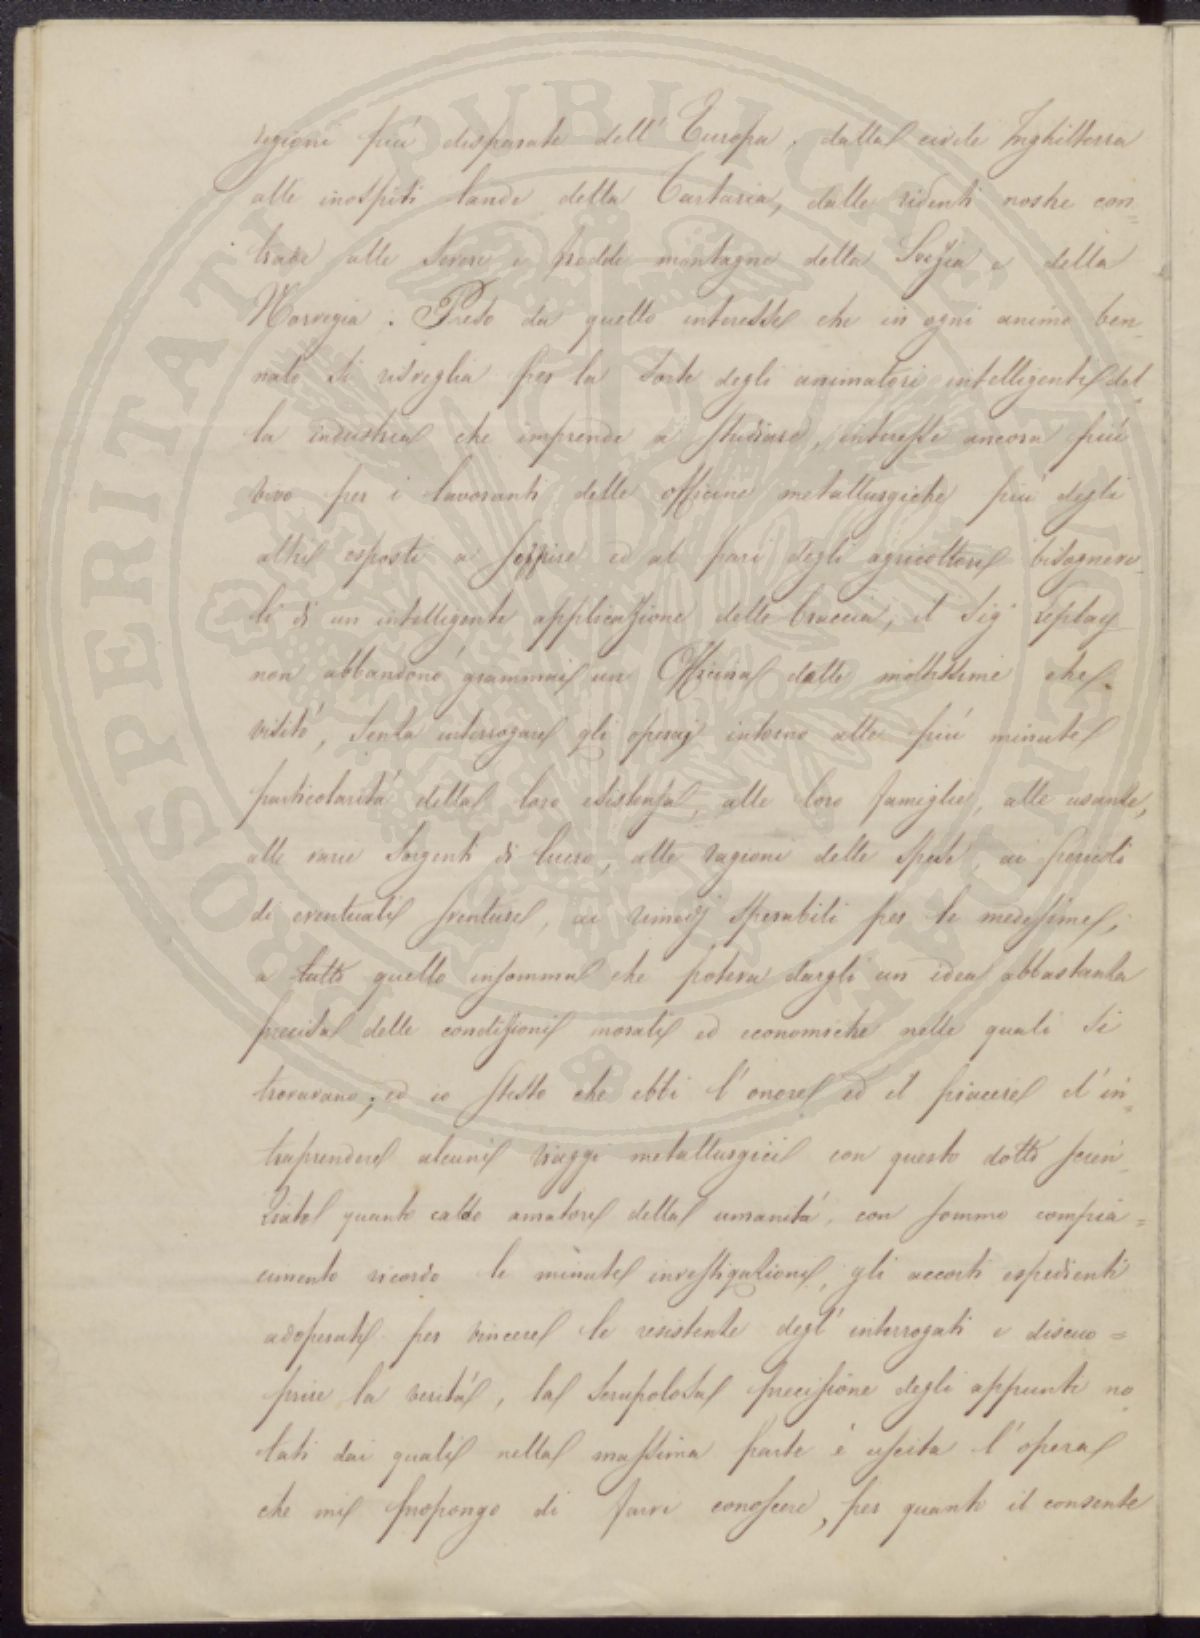 regioni più disparate dell' Europa, dalla civile Inghilterra
alle inospiti lande della Tartaria, dalle ridenti nostre con=
trade alle severe e fredde montagne della Svezia e della
Norvegia. Preso da quello interesse che in ogni animo ben
nato si risveglia per la sorte degli animatori intelligenti del
la industria che imprende a studiare, interesse ancora più
vivo per i lavoranti delle officine metallurgiche più degli
altri esposti a soffrire ed al pari degli agricoltori bisognevo
li di un intelligente applicazione delle braccia, il Sig
non abbandonò giammai un Officina dalle moltissime che
visitò, senza interrogare gli operaj intorno alle più minute
particolarità della loro esistenza, alle loro famiglie, alle usanze,
alle varie sorgenti di lucro, alle ragioni delle spese, ai pericoli
di eventuali sventure, ai rimedj sperabili per le medesime,
a tutto quello insomma che poteva dargli un idea abbastanza
precisa delle condizioni morali ed economiche nelle quali si
trovavano; ed io stesso che ebbi l' onore ed il piacere d' in=
traprendere alcuni viaggi metallurgici con questo dotto scien
ziato quanto caldo amatore della umanità, con sommo compia=
cimento ricordo le minute investigazioni, gli accorti espedienti
adoperati per vincere le resistenze degl' interrogati e discuo=
prire la verità, la scrupolosa precisione degli appunti no
tati dai quali nella massima parte è uscita l' opera
che mi propongo di farvi conoscere, per quanto il consente
PROSPERITATI PVBLICAE AVGENDAE